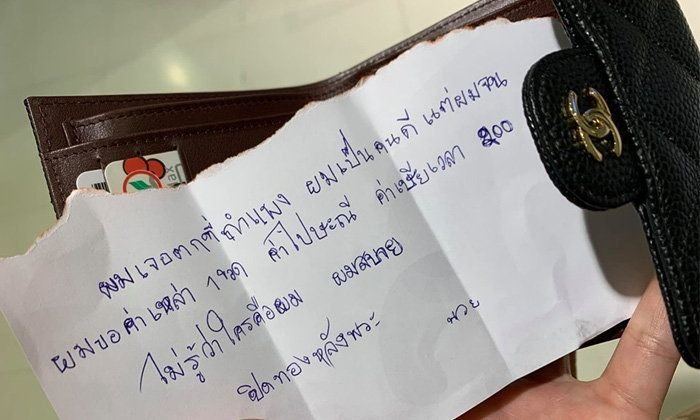 ผมเจอตกที่รามคำแหง ผมเป็นคนดี แต่ผมจน
ผมขอค่าเหล้า 1 ขวด ค่าไปษะณี ค่าเชียเวลา 200
ไม่รู้ว่าใครคือผม ผมสบาย
ปิดทองหลังพระ